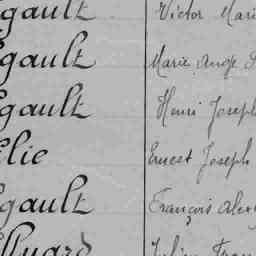 gault Victor Mari
gault Marie Ange
gault Henri Joseph
Elie Ernest Joseph
gault François Alex